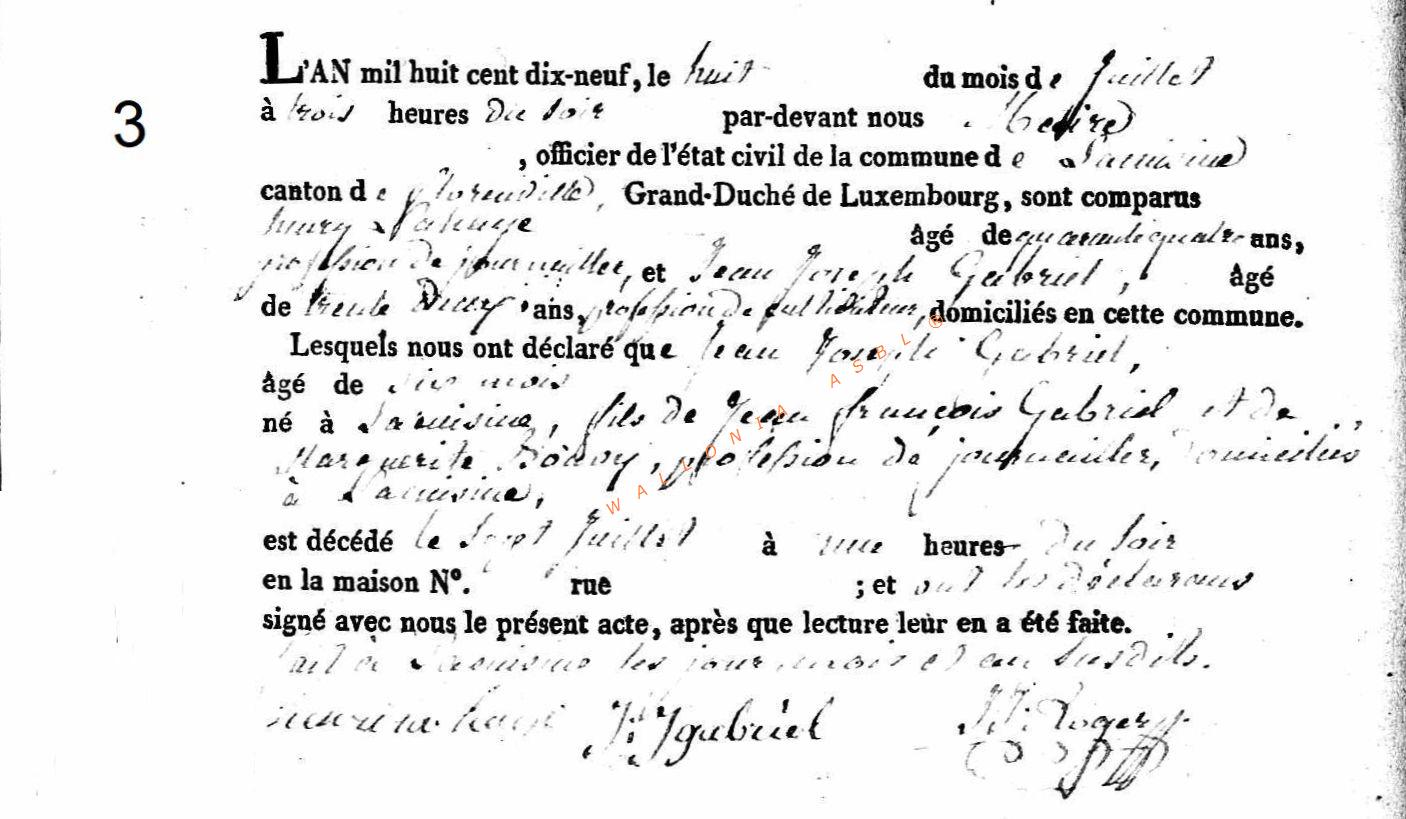 L'AN mil huit cent dix-neuf, le huit du mois de Juillet
3
à trois heures du soir par-devant nous Maire
, officier de l'état civil de la commune de
canton de florenville, Grand-Duché de Luxembourg, sont comparus
henry âgé de quarante quatre ans,
profession de journallier, et Jean Joseph Gabriel, âgé
de trente Deux ans, profession de cultivateur, domiciliés en cette commune.
Lesquels nous ont déclaré que Jean Joseph Gabriel,
âgé de six mois
né à , fils de Jean françois Gabriel et de
Marguerite , profession de journallier, Domiciliés
à
est décédé le Sept Juillet à une heures du soir
en la maison N°. rue ; et ont les déclarans
signé avec nous le présent acte, après que lecture leur en a été faite.
fait à les jour, mois et an susdits.
J: J gabriel J: J: Roger
WALLONIA ASBL ®